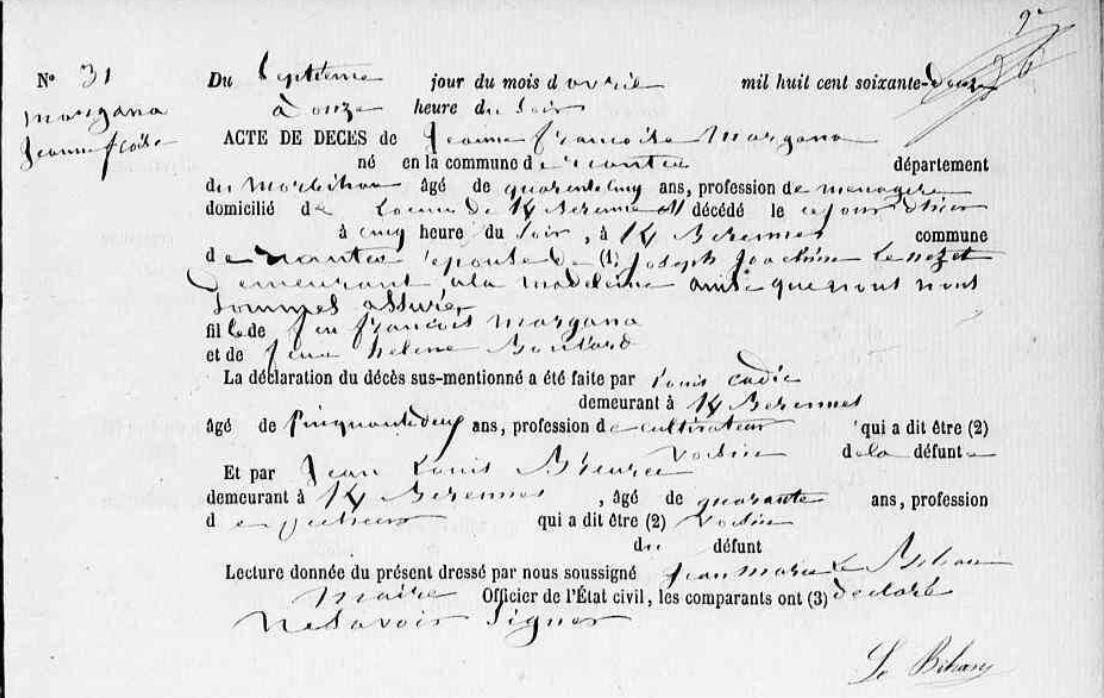 N° 31
Morgana
Jeanne fcoise
Du Septieme jour du mois d avril mil huit cent soixante-Douze
à onze heure du Soir
ACTE DE DECES de Jeanne francoise Morgana
né en la commune de département
du Morbihan âgé de quarentecinq ans, profession de menagere
domicilié de décédé le cejour D'hier
à cinq heure du Soir, à K Berennes commune
de l'epouse De (1) Joseph Joachim Lenezet
Demeurant ala madeleine ainsi que nous nous
Sommes assurés
fille de feu francois Morgana
et de feue helene
La déclaration du décès sus-mentionné a été faite par Louis Cadic
demeurant à K Berennes
âgé de Cinquantedeux ans, profession de cultivateur qui a dit être (2)
Voisin de la défunte
Et par Jean Louis
demeurant à K Berennes, âgé de quarante ans, profession
de pecheur qui a dit être (2) Voisin
de défunt
Lecture donnée du présent dressé par nous soussigné Jean Marie Le Bihan
Maire Officier de l'État civil, les comparants ont (3) declaré
ne Savoir Signer
Le Bihan